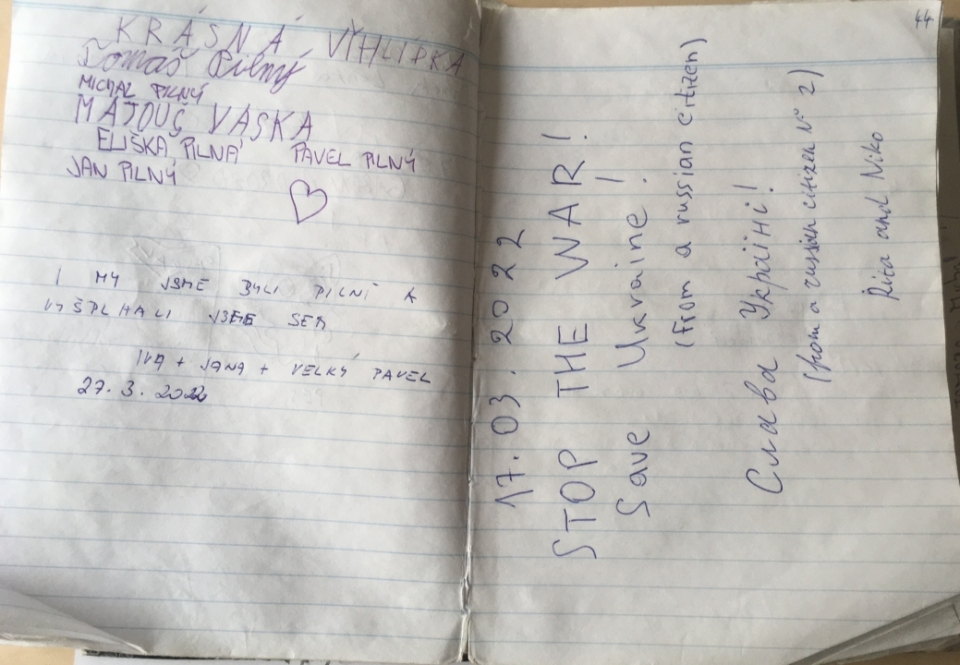 KRÁSNÁ VÝHLÍDKA
Tomáš Pilný
MICHAL PILNÝ
MATOUŠ VAŠKA
ELIŠKA PILNÁ PAVEL PILNÝ
JAN PILNÝ
I MY JSME BYLI PILNÍ A
VYŠPLHALI JSME SEM
IVA + JANA + VELKÝ PAVEL
27.3.2022
44
17.03.2022
STOP THE WAR!
Save Ukraine!
(from a russian citizen)
Слава Україні!
(from a russian citizen № 2)
Rita and Niko